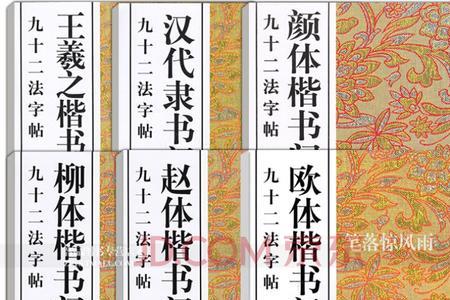 王羲之楷书
九十二法字帖
汉代隶书
九十二法字帖
颜体楷书
九十二法字帖
柳体楷书
九十二法字帖
赵体楷书
九十二法字帖
欧体楷书
九十二法字帖
JD.COM 京东
笔落惊风雨